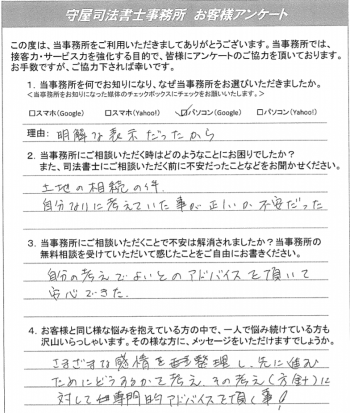 守屋司法書士事務所 お客様アンケート
この度は、当事務所をご利用いただきましてありがとうございます。当事務所では、
接客力・サービス力を強化する目的で、皆様にアンケートのご協力を頂いております。
お手数ですが、ご協力下されば幸いです。
1. 当事務所を何でお知りになり、なぜ当事務所をお選びいただきましたか。
＜当事務所をお知りになった媒体のチェックボックスにチェックをお願いいたします。＞
□スマホ(Google) □スマホ(Yahoo!) ☑パソコン(Google) □パソコン(Yahoo!)
理由: 明解な表示だったから
2. 当事務所にご相談いただく時はどのようなことにお困りでしたか？
また、司法書士にご相談いただく前に不安だったことなどをお聞かせください。
土地の相続の件.
自分なりに考えていた事が正しいか不安だった
3. 当事務所にご相談いただくことで不安は解消されましたか？当事務所の
無料相談を受けていただいて感じたことをご自由にお書きください。
自分の考えでよいとのアドバイスを頂いて
安心できた.
4. お客様と同じ様な悩みを抱えている方の中で、一人で悩み続けている方も
沢山いらっしゃいます。その様な方に、メッセージをいただけますでしょうか。
さまざまな感情を整理し、先に進む
ためにどうするかを考え、その考え(方針)に
対して専門的アドバイスを頂く事!